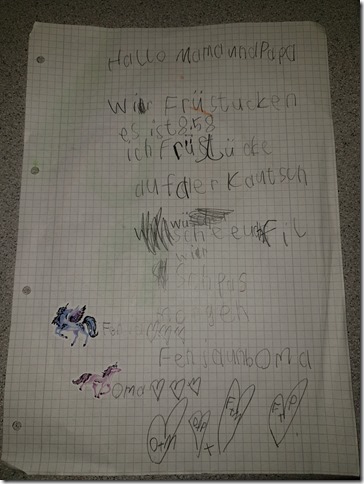 Hallo MamaundPapa
wir Früstucken
es ist 8:58
ich Früstücke
auf der Kautsch
wü
sche euch Fil
wir
Schpas
morgen
FensaundOma
Oma
O+M
O+P
+
F+M
F+P